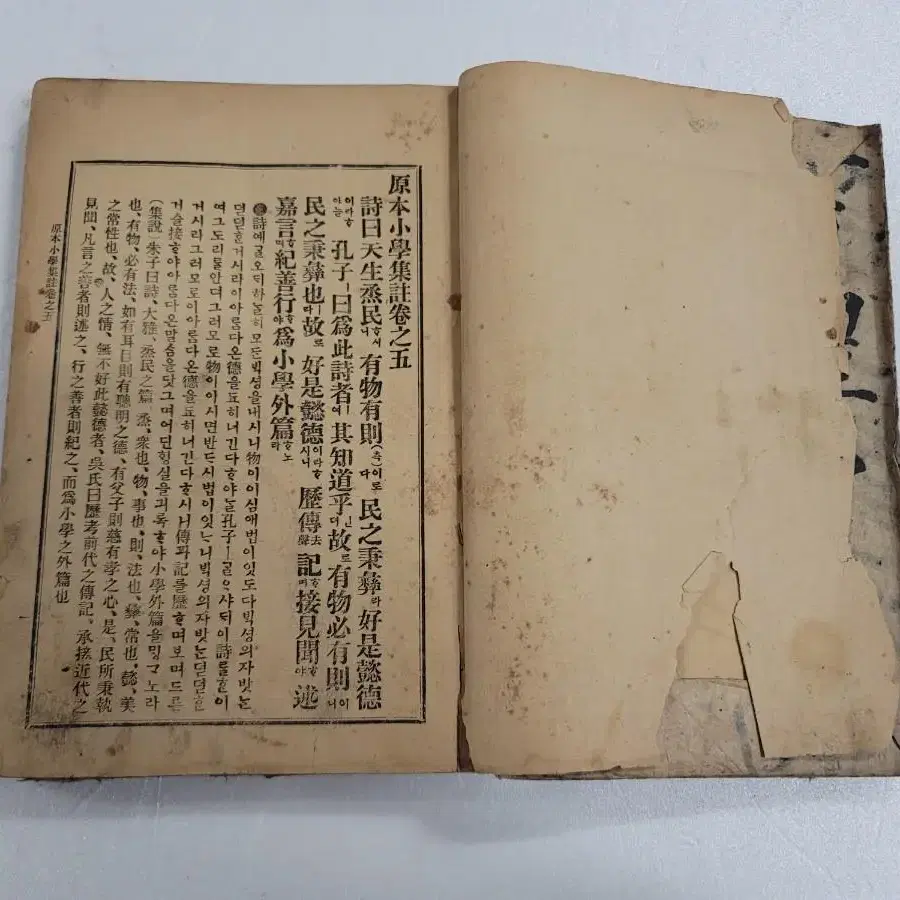 原本小學集註卷之五
詩曰天生烝民ᄒᆞ시니 有物有則(측)이로다 民之秉彝라 好是懿德
이라ᄒᆞ야ᄂᆞᆯ 孔子ㅣ曰爲此詩者ㅣ여 其知道乎ㄴ뎌 故로有物必有則이니
民之秉彝也ㅣ라故로 好是懿德이라ᄒᆞ시니 歷傳去聲記ᄒᆞ며接見聞ᄒᆞ야 述
嘉言ᄒᆞ며紀善行ᄒᆞ야爲小學外篇ᄒᆞ노라
詩예ᄀᆞᆯ오ᄃᆡ하ᄂᆞᆯ히모ᄃᆞᆫᄇᆡᆨ셩을내시니物이이심애법이잇도다ᄇᆡᆨ셩의자밧ᄂᆞᆫ
덛덛ᄒᆞᆫ거시라이아ᄅᆞᆷ다온德을됴히너긴다ᄒᆞ야ᄂᆞᆯ孔子ㅣᄀᆞᆯᄋᆞ샤ᄃᆡ이詩를ᄒᆞᆫ이
여그도리물안뎌그러모로物이이시면반ᄃᆞ시법이잇ᄂᆞ니ᄇᆡᆨ셩의자밧ᄂᆞᆫ덛덛ᄒᆞᆫ
거시라그러모로이아ᄅᆞᆷ다온德을됴히너긴다ᄒᆞ시니傳과記를歷ᄒᆞ며보며드른
거슬接ᄒᆞ야아ᄅᆞᆷ다온말ᄉᆞᆷ을닷그며어딘ᄒᆡᆼ실을긔록ᄒᆞ야小學外篇을ᄆᆡᆼᄀᆞ노라
(集說)朱子曰詩、大雅、烝民之篇、烝、衆也、物、事也、則、法也、彝、常也、懿、美
也、有物、必有法、如有耳目則有聰明之德、有父子則慈有孝之心、是、民所秉執
之常性也、故、人之情、無不好此懿德者、吳氏曰歷考前代之傳記、承接近代之
見聞、凡言之善者則述之、行之善者則紀之、而爲小學之外篇也
原本小學集註卷之五